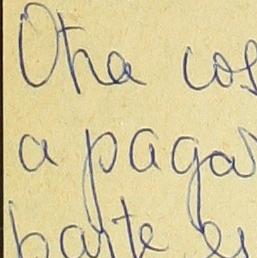 Otra cos
a pagar
parte es